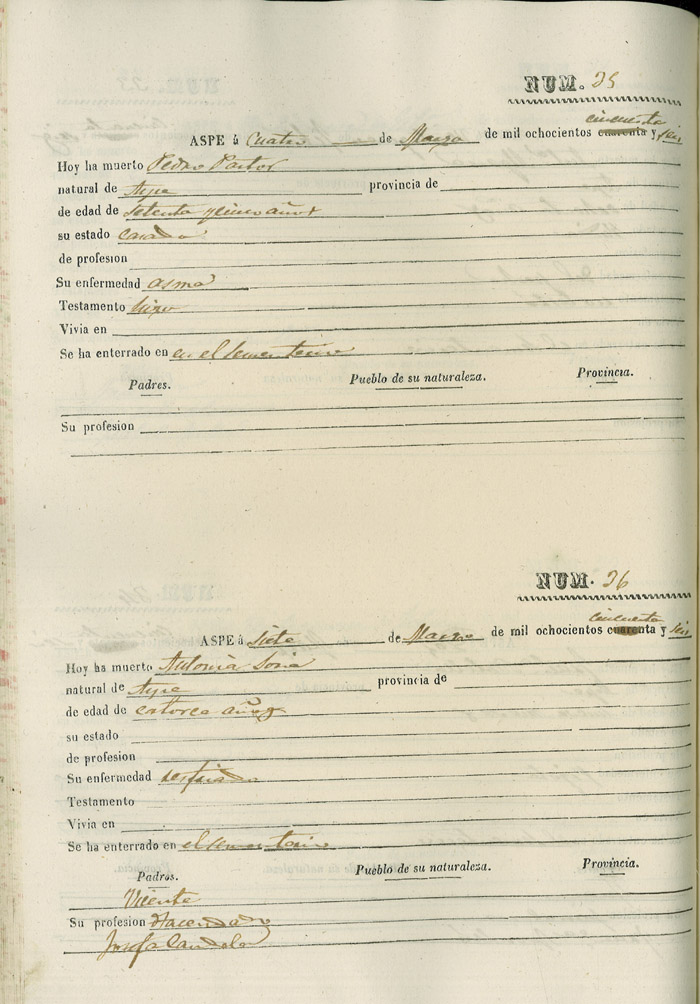 NUM. 35
cincuenta
ASPE á Cuatro de Marzo de mil ochocientos cuarenta y seis
Hoy ha muerto Pedro Pastor
natural de Aspe provincia de
de edad de setenta y cinco años
su estado casado
de profesion
Su enfermedad asma
Testamento hizo
Vivia en
Se ha enterrado en en el sementerio
Padres. Pueblo de su naturaleza. Provincia.
Su profesion
NUM. 36
cincuenta
ASPE á Siete de Marzo de mil ochocientos cuarenta y seis
Hoy ha muerto Antonia Soria
natural de Aspe provincia de
de edad de catorce años
su estado
de profesion
Su enfermedad resfriado
Testamento
Vivia en
Se ha enterrado en el sementerio
Padres. Pueblo de su naturaleza. Provincia.
Vicente
Su profesion Hacendado
Josefa Candela